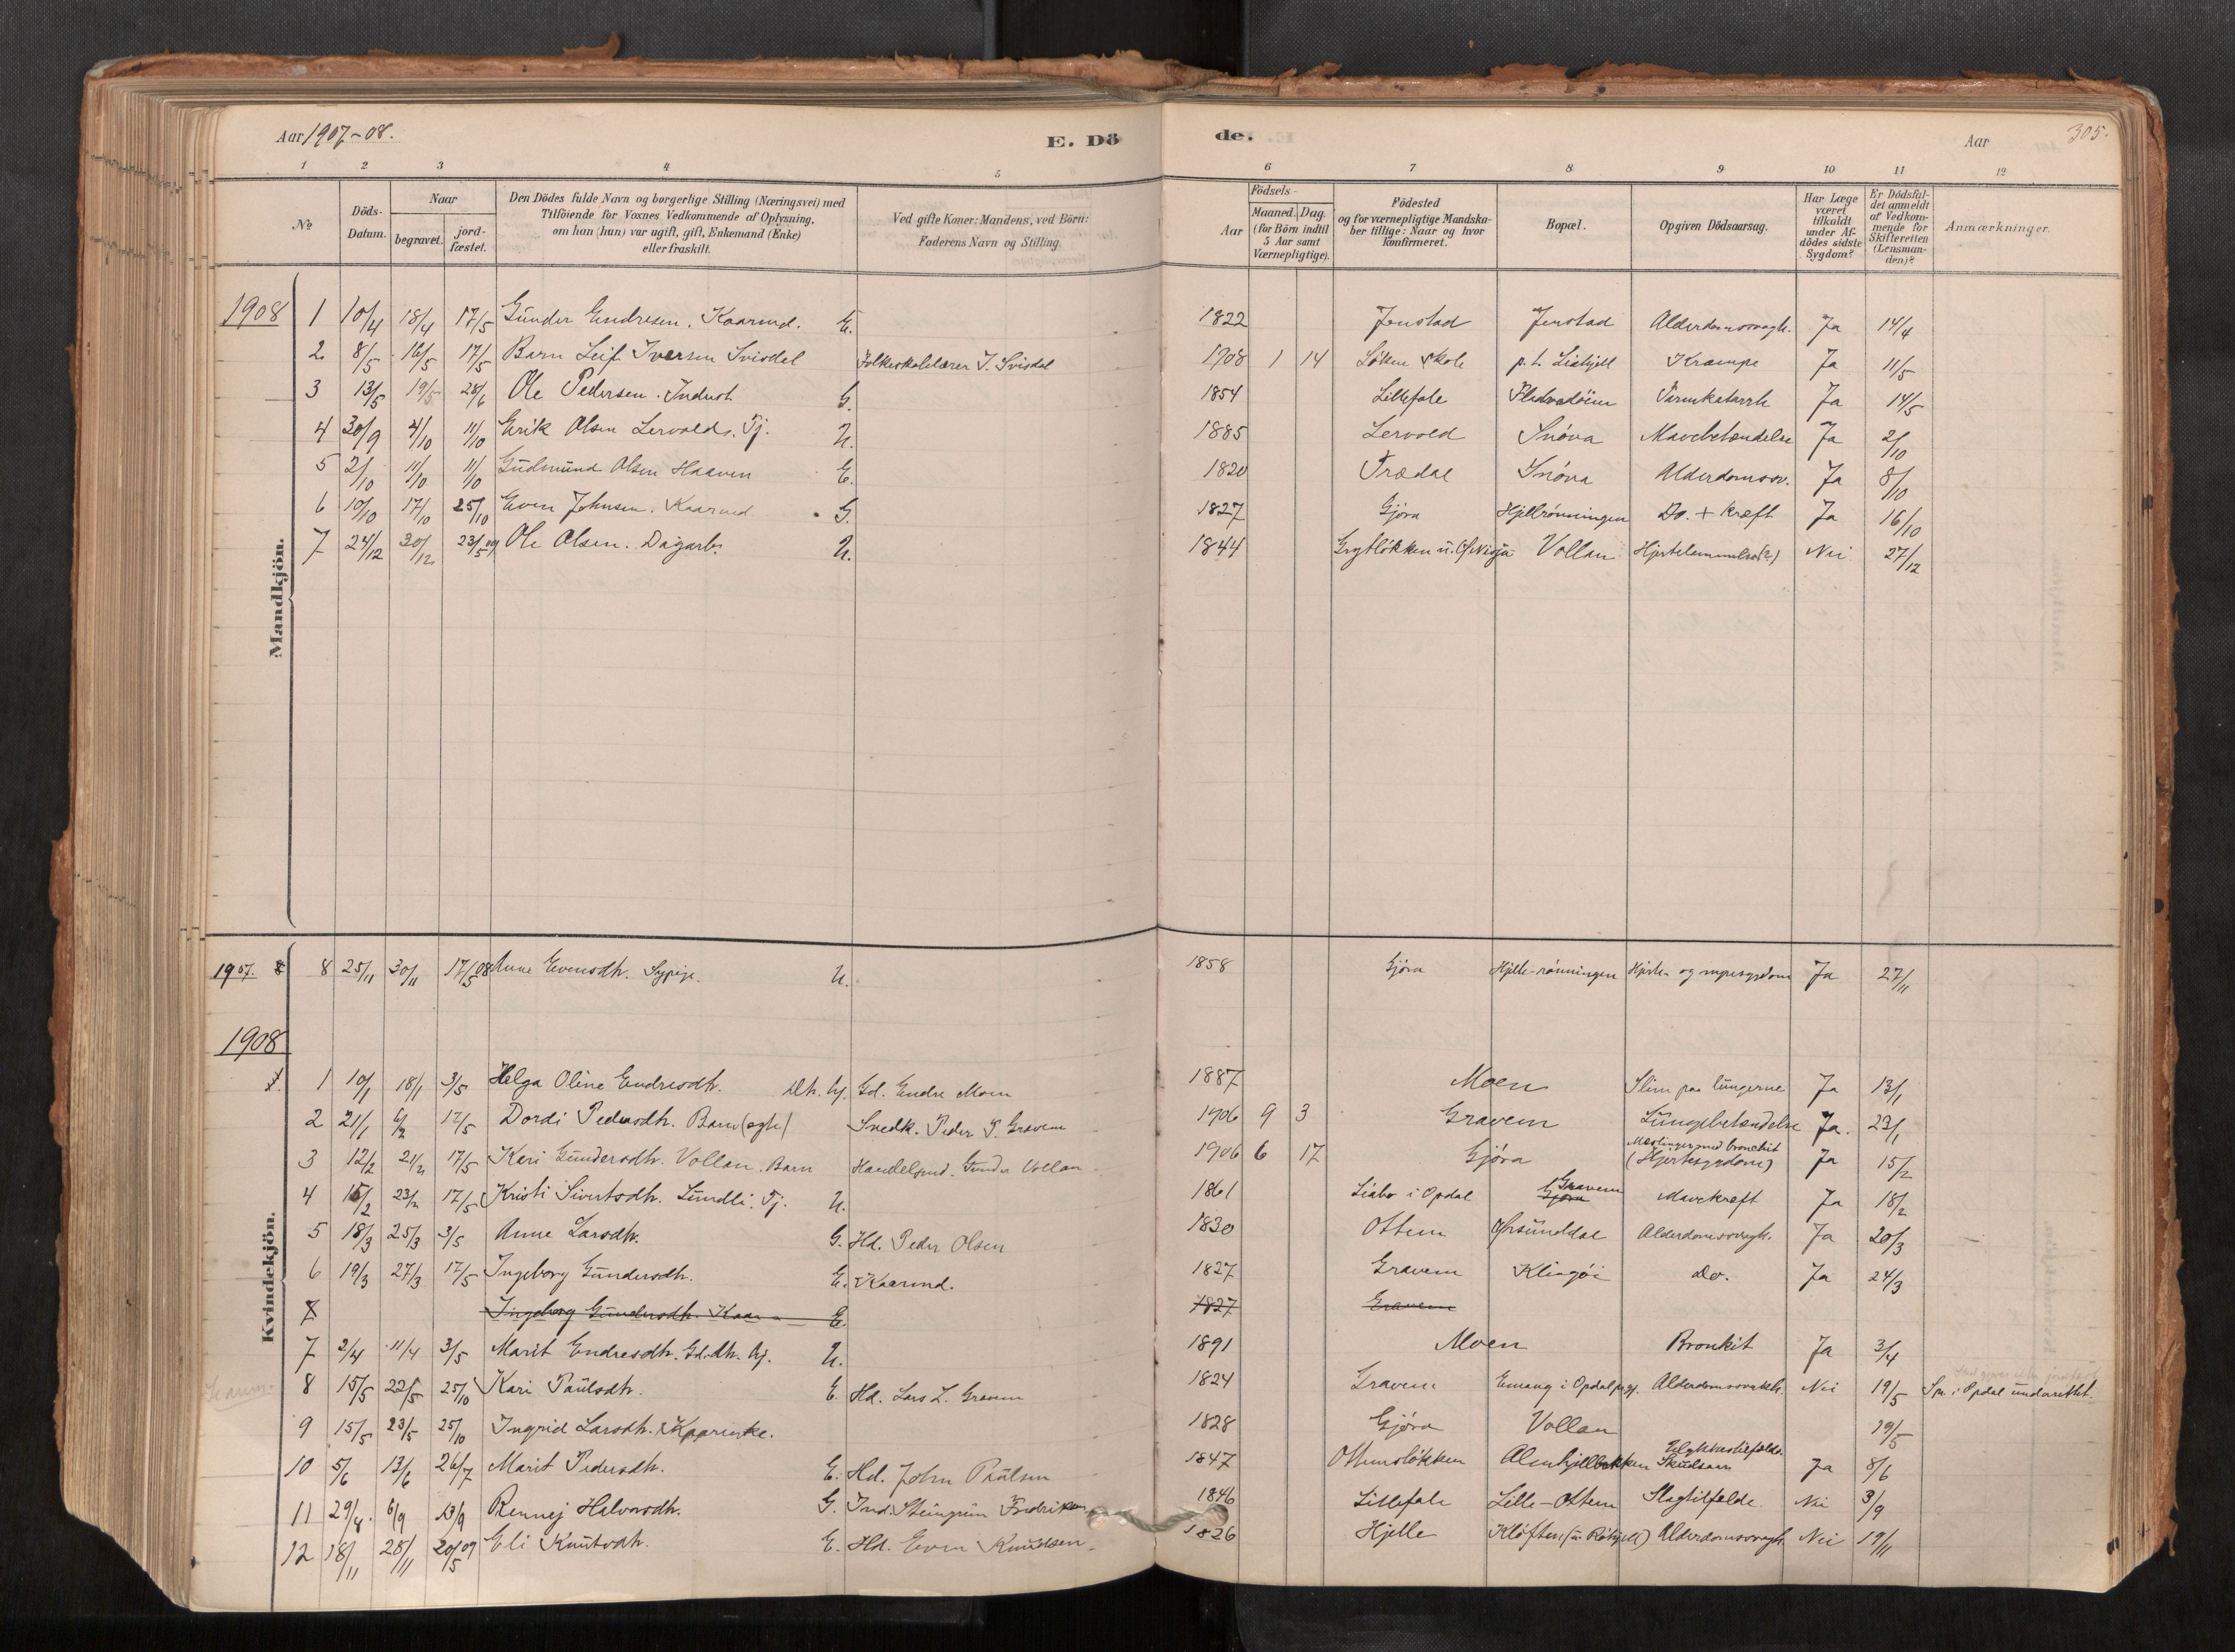 Aar 1907-08. E. Dö de. Aar 305.
1 2 3 4 5 6 7 8 9 10 11 12
№ Döds-Datum. Naar begravet. jord-fæstet. Den Dödes fulde Navn og borgerlige Stilling (Næringsvei) med Tilföiende for Voxnes Vedkommende af Oplysning, om han (hun) var ugift, gift, Enkemand (Enke) eller fraskilt. Ved gifte Koner: Mandens, ved Börn: Faderens Navn og Stilling. Födsels- Aar Maaned. Dag. (for Börn indtil 5 Aar samt Værnepligtige). Födested og for værnepligtige Mandska-ber tillige: Naar og hvor konfirmeret. Bopæl. Opgiven Dödsaarsag. Har Læge været tilkaldt under Af-dödes sidste Sygdom? Er Dödsfal-det anmeldt af Vedkom-mende for Skifteretten (Lensman-den)? Anmærkninger.
Mandkjön.
1908 1 10/4 18/4 17/5 Gunder Endresen. Kaarmd. E. 1822 Jenstad Jenstad Alderdomssvagh. Ja 14/4
2 8/5 16/5 17/5 Barn Leif Iversen Svisdal Folkeskolelærer I. Svisdal 1908 1 14 Løken skole p.t. Liahjell Krampe Ja 11/5
3 13/5 19/5 28/6 Ole Pedersen. Inderst G. 1854 Lillefale Tarmkatarrh Ja 14/5
4 30/9 4/10 11/10 Erik Olsen Lervold. Tj. U. 1885 Lervold Snøva Mavebetændelse Ja 2/10
5 2/10 11/10 11/10 Gudmund Olsen Haaven E. 1820 Trædal Snøva Alderdomssv. Ja 8/10
6 10/10 17/10 25/10 Even Johnsen. Kaarmd. G. 1827 Gjøra Hjellrønningen Do. + kræft Ja 16/10
7 24/12 30/12 23/5 09 Ole Olsen. Dagarb. U. 1844 Grytløkken u. Vollan Hjertelammelse(?) Nei 27/12
Kvindekjön.
1907. 8 8 25/11 30/11 17/5 08 Anne Evensdtr. Sypige. U. 1858 Gjøra Hjelle-rønningen Hjerte- og nyresygdom Ja 27/11
1908
1 10/1 18/1 3/5 Helga Oline Endresdtr. Dtr. Ug. Gd. Endre Moen 1887 Moen Slim paa lungerne Ja 13/1
2 21/1 6/2 17/5 Dordi Pedersdtr. Barn (egte) Snedk. Peder P. Gravem 1906 9 3 Gravem Lungebetændelse Ja. 23/1
3 12/2 21/2 17/5 Kari Gundersdtr. Vollan. Barn Handelsmd. Gunder Vollan 1906 6 17 Gjøra Mæslinger med bronchit (Hjertesygdom) Ja 15/2
4 15/2 23/2 17/5 Kristi Sivertsdtr. Lundli. Tj. U. 1861 Liabø i Opdal Gravem Gjøra Mavekræft Ja 18/2
5 18/3 25/3 3/5 Anne Larsdtr. G. Hd. Peder Olsen 1830 Ottem Ørsunddal Alderdomssvagh. Ja 20/3
6 19/3 27/3 17/5 Ingeborg Gundersdtr. E. Kaarmd. 1827 Gravem Klingøi do. Ja 24/3
7 Ingeborg Gundersdtr. Kaar E. 1827 Gravem
7 2/4 11/4 3/5 Marit Endresdtr. Gd. dtr. Ug. U. 1891 Moen Bronkit Ja 3/4
8 15/5 22/5 25/10 Kari Paulsdtr. E. Hd. Lars L. Gravem 1824 Gravem Emang i Opdal prgj. Alderdomssvakh. Nei 19/5 Spr. i Opdal underrettet.
9 15/5 23/5 25/10 Ingrid Larsdtr. 1828 Gjøra Vollan 19/5
10 5/6 13/6 26/7 Marit Pedersdtr. E. Hd. John Paulsen 1847 Ottemsløkken Almhjellbakken Ulykkestilfælde. Skudsaar Ja 8/6
11 29/8. 6/9 13/9 Rennej Halvorsdtr. G. Ind. Steingrim Fredriksen 1846 Lillefale Lille-Ottem Slagtilfælde. Nei 3/9
12 18/11 28/11 20/5 09 Eli Knutsdtr. E. Hd. Even Knudsen 1826 Hjelle Kløften (u. ) Alderdomssvagh. Nei 19/11